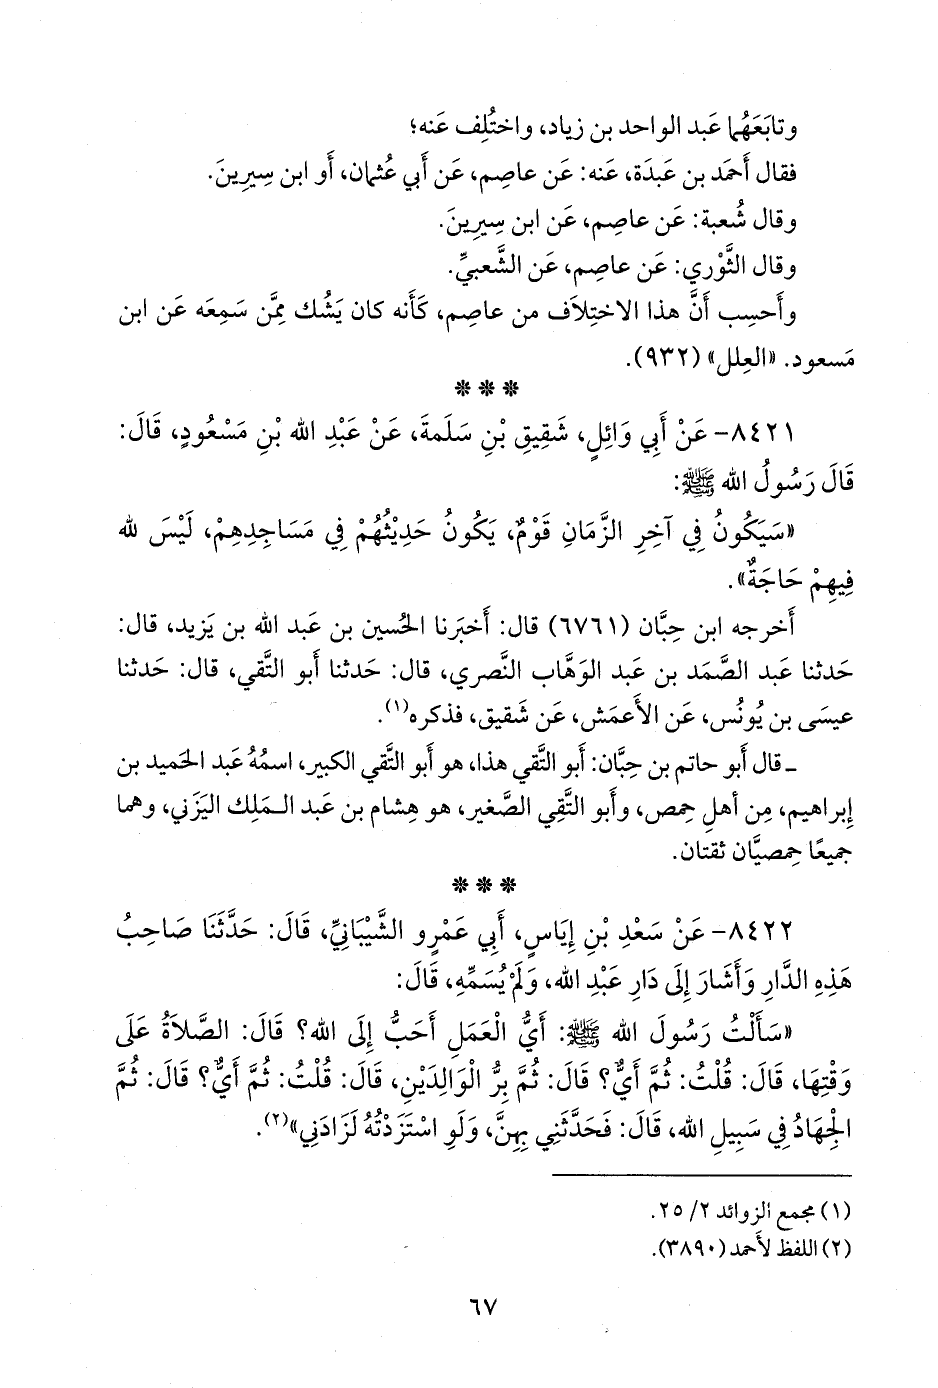 وتابَعَهُما عَبد الواحد بن زياد، واختُلِف عَنه؛
فقال أَحمَد بن عَبدَة، عَنه: عَن عاصِم، عَن أَبي عُثمان، أَو ابن سِيرِينَ.
وقال شُعبة: عَن عاصِم، عَن ابن سِيرِينَ.
وقال الثَّوْري: عَن عاصِم، عَن الشَّعبيِّ.
وأَحسِب أَنَّ هذا الاختِلاَف من عاصِم، كَأَنه كان يَشُك مِمَّن سَمِعَه عَن ابن
مَسعود. «العِلل» (٩٣٢).
***
٨٤٢١- عَنْ أَبِي وَائِلٍ، شَقِيقِ بْنِ سَلَمةَ، عَنْ عَبْدِ الله بْنِ مَسْعُودٍ، قَالَ:
قَالَ رَسُولُ الله ﷺ:
«سَيَكُونُ فِي آخِرِ الزَّمَانِ قَوْمٌ، يَكُونُ حَدِيْثُهُمْ فِي مَسَاجِدِهِمْ، لَيْسَ لله
فِيهِمْ حَاجَةٌ».
أَخرجه ابن حِبَّان (٦٧٦١) قال: أَخبَرنا الحُسين بن عَبد الله بن يَزيد، قال:
حَدثنا عَبد الصَّمَد بن عَبد الوَهَّاب النَّصري، قال: حَدثنا أَبو التَّقي، قال: حَدثنا
عيسَى بن يُونُس، عَن الأَعمَش، عَن شَقيق، فذكره(١).
ـ قال أَبو حاتم بن حِبَّان: أَبو التَّقي هذا، هو أَبو التَّقي الكبير، اسمُهُ عَبد الحَميد بن
إِبراهيم، مِن أَهلِ حِمص، وأَبو التَّقِي الصَّغير، هو هِشام بن عَبد الـمَلِك اليَزَني، وهما
جميعًا حِمصيَّان ثقتان.
***
٨٤٢٢- عَنْ سَعْدِ بْنِ إِيَاسٍ، أَبِي عَمْرٍو الشَّيْبَانِيِّ، قَالَ: حَدَّثَنَا صَاحِبُ
هَذِهِ الدَّارِ وَأَشَارَ إِلَى دَارِ عَبْدِ الله، وَلَمْ يُسَمِّهِ، قَالَ:
«سَأَلْتُ رَسُولَ الله ﷺ: أَيُّ الْعَمَلِ أَحَبُّ إِلَى الله؟ قَالَ: الصَّلاَةُ عَلَى
وَقْتِهَا، قَالَ: قُلْتُ: ثُمَّ أَيٌّ؟ قَالَ: ثُمَّ بِرُّ الْوَالِدَيْنِ، قَالَ: قُلْتُ: ثُمَّ أَيٌّ؟ قَالَ: ثُمَّ
الْجِهَادُ فِي سَبِيلِ الله، قَالَ: فَحَدَّثَنِي بِهِنَّ، وَلَوِ اسْتَزَدْتُهُ لَزَادَنِي»(٢).
(١) مجمع الزوائد ٢/ ٢٥.
(٢) اللفظ لأَحمد (٣٨٩٠).
٦٧